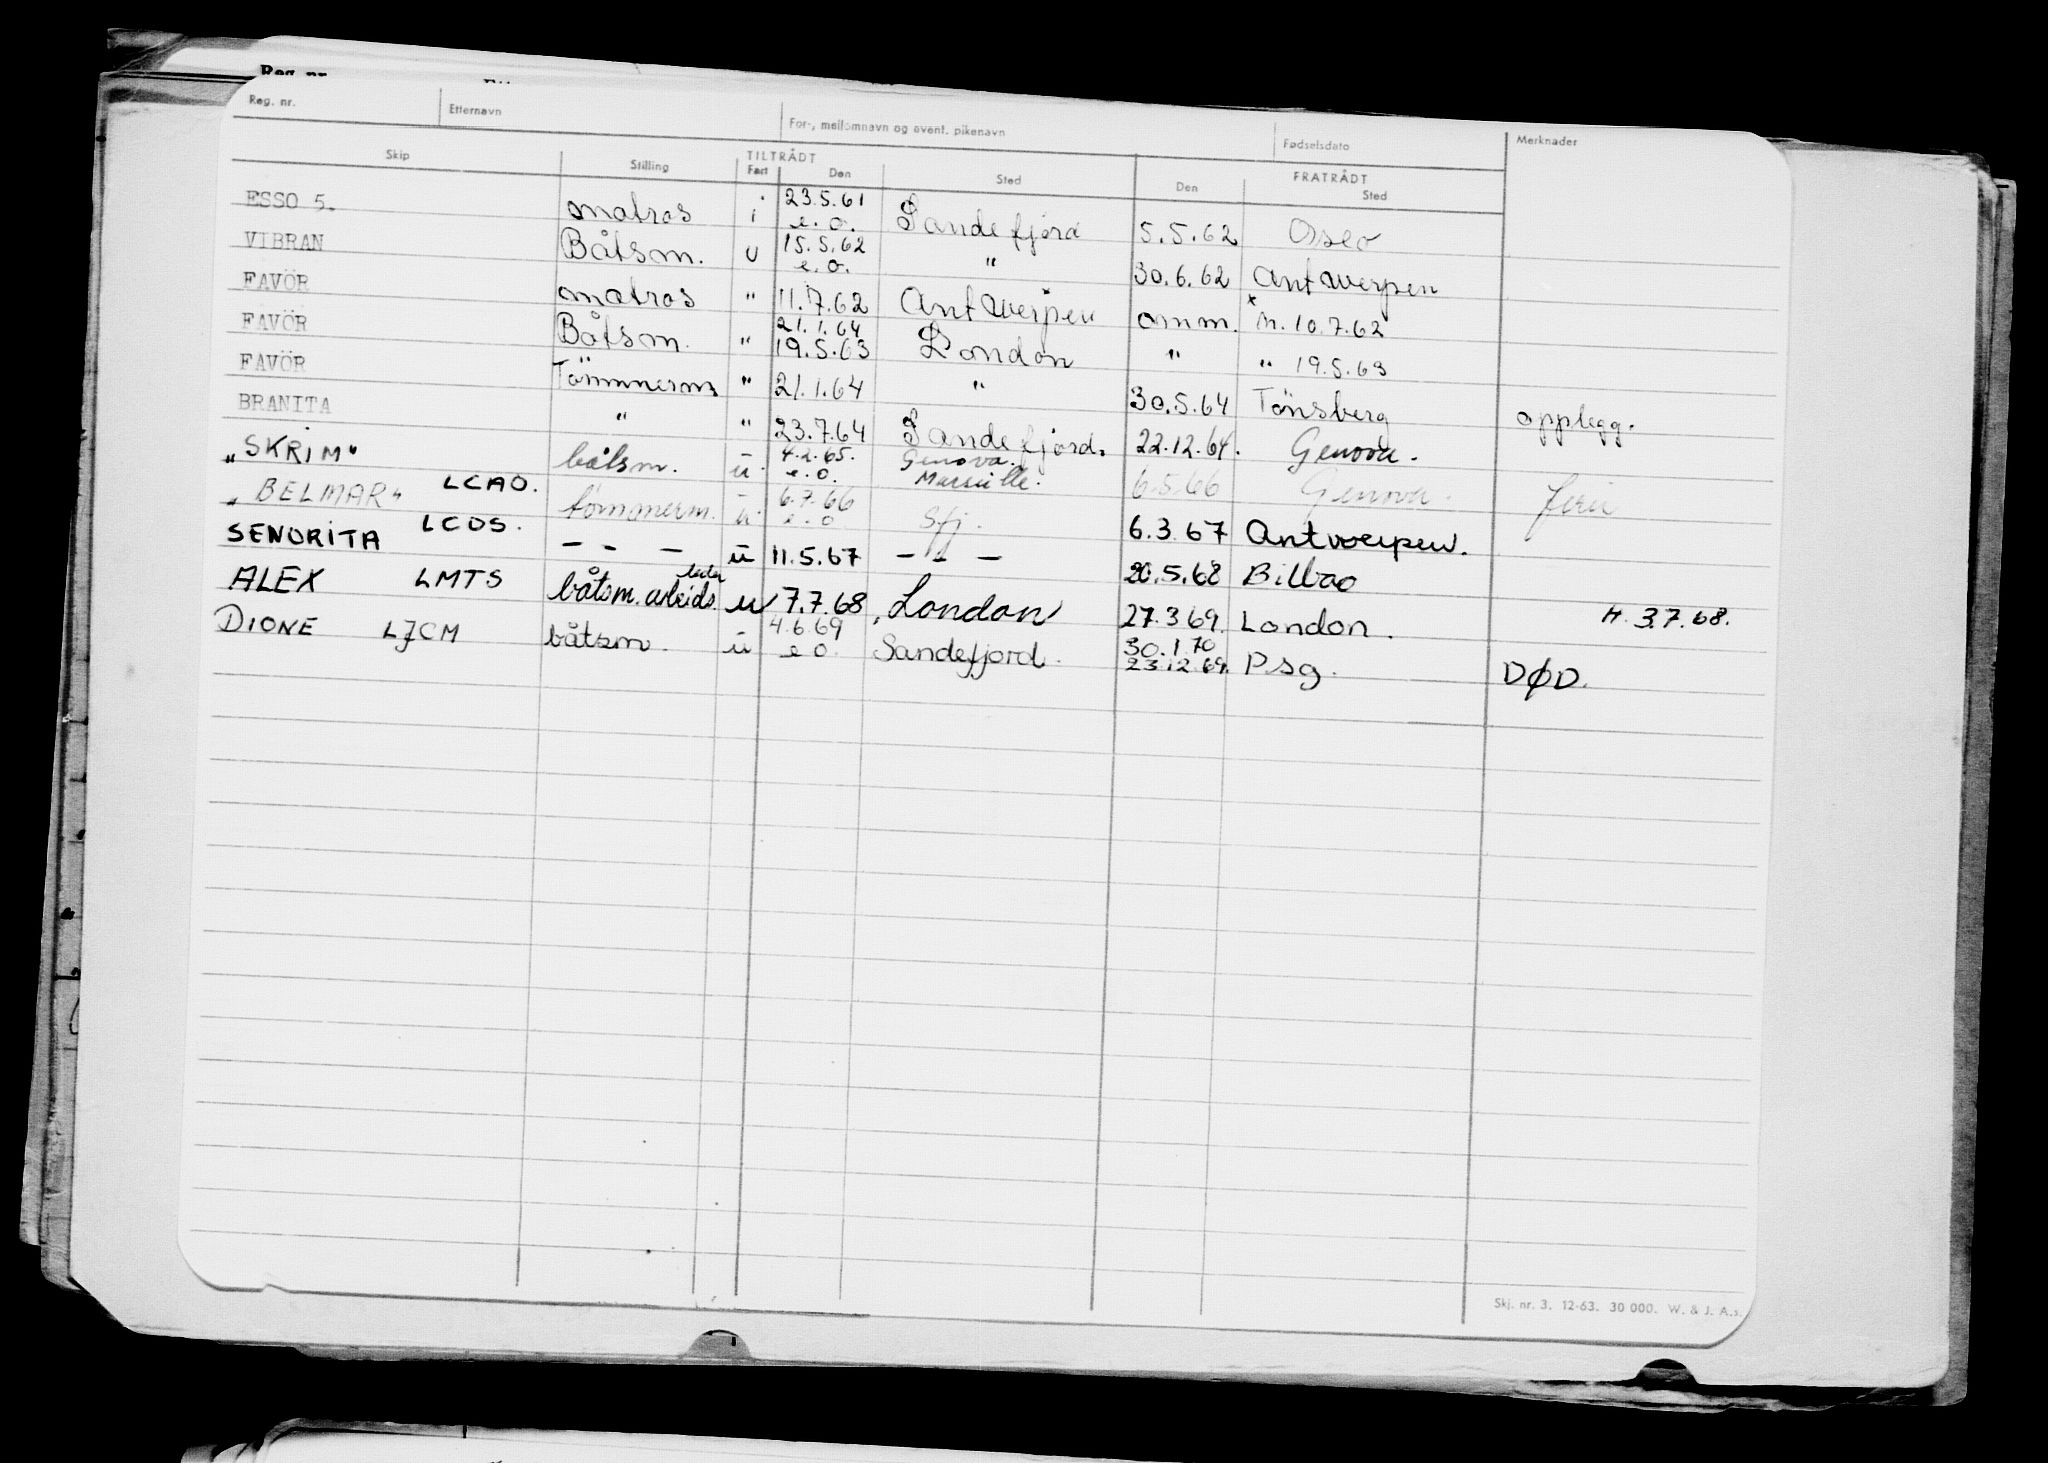 Reg. nr.
Reg. nr. Etternavn For-, mellomnavn og event. pikenavn Fødselsdato Merknader
Skip Stilling TILTRÅDT Fart Den Sted FRATRÅDT Den Sted
ESSO 5. matros i 23.5.61 e.o. Sandefjord 5.5.62 Oslo
VIBRAN Båtsm. u 15.5.62 e.o. " 30.6.62 Antwerpen
FAVÖR matros " 11.7.62 Antwerpen omm. x M. 10.7.62
FAVÖR Båtsm. " 21.1.64 19.5.63 London " " 19.5.63
FAVÖR Tömmerm " 21.1.64 " 30.5.64 Tönsberg opplegg.
BRANITA " " 23.7.64 Sandefjord. 22.12.64. Genova.
"SKRIM" LCAO. båtsm. u 4.2.65. e.o. Genova. Marseille. 6.5.66 Genova. ferie
"BELMAR" LCOS. tømmerm. u 6.7.66 e.o. Sfj. 6.3.67 Antwerpen.
SENORITA - - - u 11.5.67 - - - 20.5.68 Bilbao
ALEX LMTS båtsm. arbeids. leder u 7.7.68, London 27.3.69. London. H. 3.7.68.
DIONE LJCM båtsm. u 4.6.69 e.o. Sandefjord. 30.1.70 23.12.69. Psg. DØD.
Skj. nr. 3. 12-63. 30 000. W. & J. A.s.